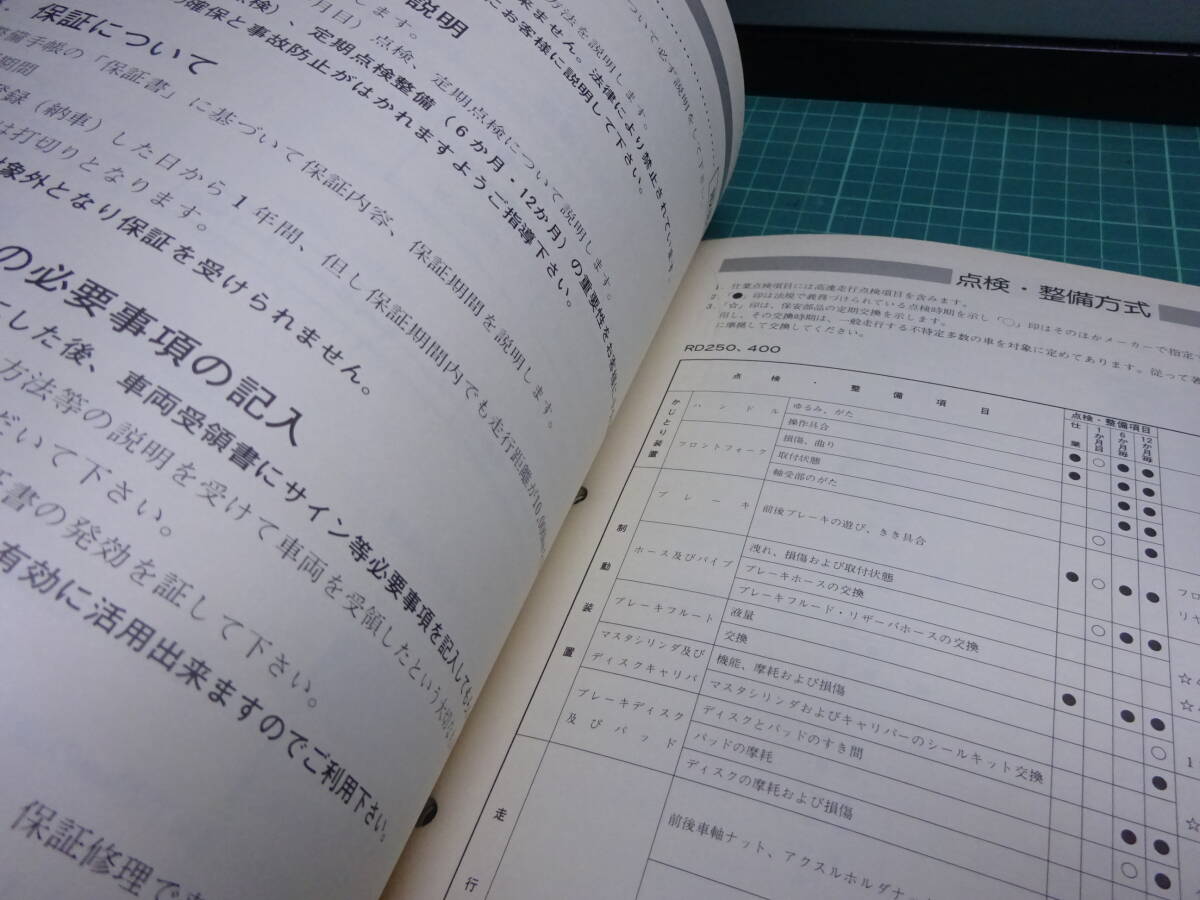 説明
について必ず説明をして下さい
方法を説明します。
来ません。法律により禁止されています
にお客様に説明して下さい。
月目)点検、定期点検について説明します。
点検)、定期点検整備(6か月・12か月)の重要性をお客様に
の確保と事故防止がはかれますようご指導下さい。
保証について
整備手帳の「保証書」に基づいて保証内容、保証期間を説明します。
期間
登録(納車)した日から1年間、但し保証期間内でも走行距離が10,000
は打切りとなります。
対象外となり保証を受けられません。
の必要事項の記入
にした後、車両受領書にサイン等必要事項を記入しても
方法等の説明を受けて車両を受領したという大切な
だいて下さい。
証書の発効を証して下さい。
有効に活用出来ますのでご利用下さい。
保証修理で
点検・整備方式
1. 仕業点検項目には高速走行点検項目を含みます。
2.「●」印は法規で義務づけられている点検時期を示し「○」印はそのほかメーカーで指定
3.「☆」印は、保安部品の定期交換を示します。
但し、その交換時期は、一般走行する不特定多数の車を対象に定めてあります。従って著
に準拠して交換してください。
RD250、400
点検・整備項目
点検・整備項目
仕業
1か月目
6か月毎
12か月毎
かじとり装置
ハンドル
ゆるみ、がた
操作具合
フロントフォーク
損傷、曲り
取付状態
軸受部のがた
制動装置
ブレーキ
前後ブレーキの遊び、きき具合
ホース及びパイプ
洩れ、損傷および取付状態
ブレーキホースの交換
ブレーキフルード・リザーバホースの交換
ブレーキフルート
液量
交換
マスタシリンダ及び
ディスクキャリパ
機能、摩耗および損傷
マスタシリンダおよびキャリパーのシールキット交換
ブレーキディスク
及びパッド
ディスクとパッドのすき間
パッドの摩耗
ディスクの摩耗および損傷
走行
前後車軸ナット、アクスルホルダナッ
フロ
リヤ